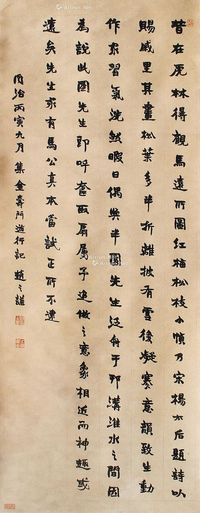 昔在虎林得觀馬遠所圖紅梅松枝小幀乃宋楊太后題詩以
賜戚里其畫松葉多半折離披有雪後凝寒意韻致生動
作家習氣洗然暇日偶與半園先生泛舟于邗溝淮水之間因
為説此圖先生即呼奮取扇屬予追倣之意象相近而神趣或
遺矣先生家有馬公真本當試正所不逮
同治丙寅九月集金壽門遊行記趙之謙